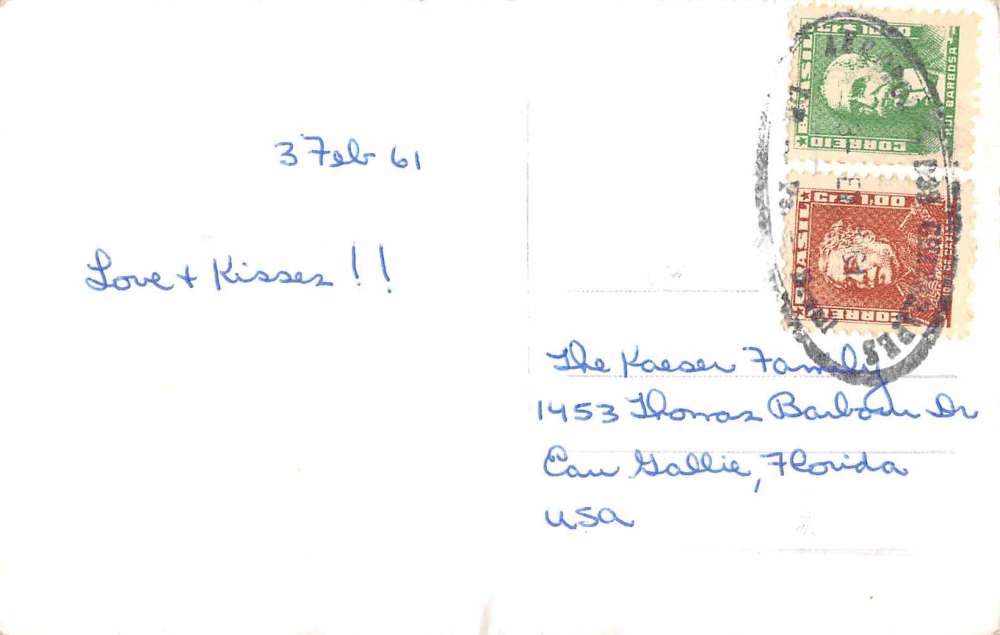 3 Feb 61
Love + Kisses!!
The Kaeser Family
1453 Thomas Barbour Dr
Eau Gallie, Florida
USA
BRASIL
CORREIO
RUI BARBOSA
Cr$ 1,00
BRASIL
CORREIO